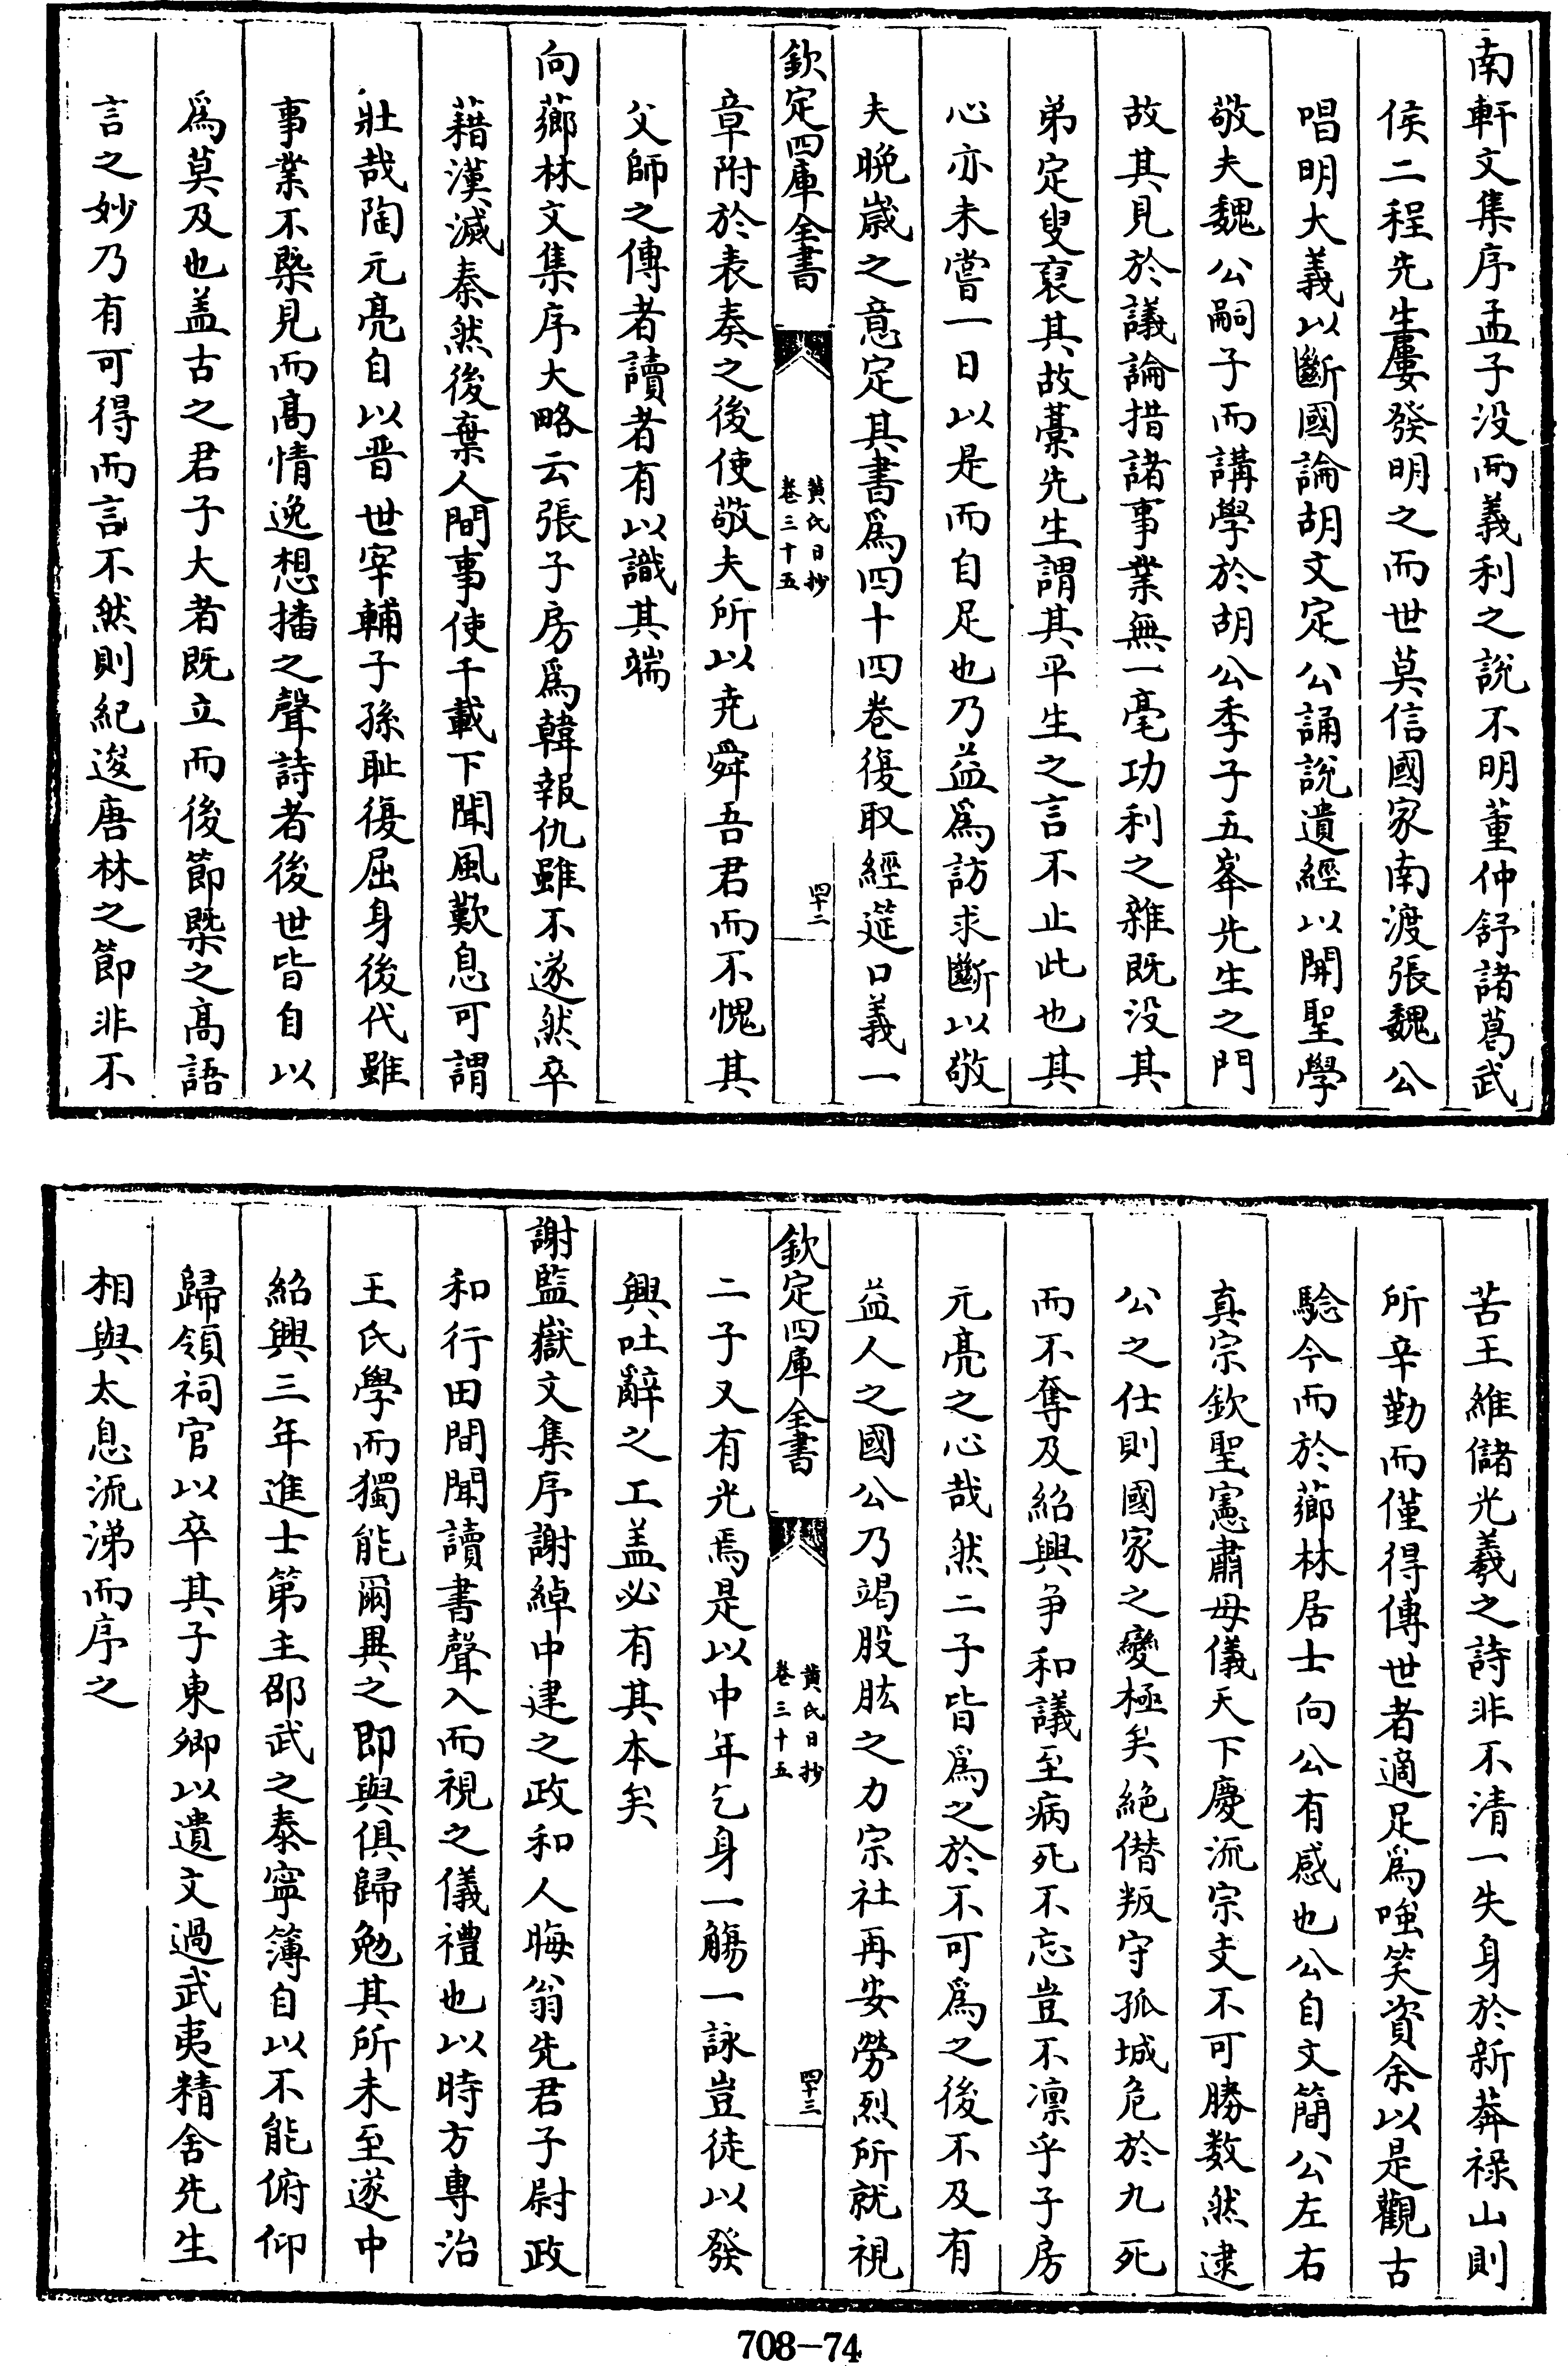 南軒文集序孟子没而義利之説不明董仲舒諸葛武
侯二程先生屢發明之而世莫信國家南渡張魏公
唱明大義以斷國論胡文定公誦説遺經以開聖學
敬夫魏公嗣子而講學於胡公季子五峯先生之門
故其見於議論措諸事業無一毫功利之雜既没其
弟定叟裒其故藁先生謂其平生之言不止此也其
心亦未嘗一日以是而自足也乃益為訪求斷以敬
夫晩歳之意定其書為四十四卷復取經筵口義一
欽定四庫全書
黃氏日抄
卷三十五
四十二
章附於表奏之後使敬夫所以尭舜吾君而不愧其
父師之傳者讀者有以識其端
向薌林文集序大略云張子房為韓報仇雖不遂然卒
藉漢滅秦然後棄人間事使千載下聞風歎息可謂
壯哉陶元亮自以晋世宰輔子孫耻復屈身後代雖
事業不槩見而髙情逸想播之聲詩者後世皆自以
為莫及也盖古之君子大者既立而後節槩之髙語
言之妙乃有可得而言不然則紀逡唐林之節非不
苦王維儲光羲之詩非不清一失身於新莽禄山則
所辛勤而僅得傳世者適足為嗤笑資余以是觀古
騐今而於薌林居士向公有感也公自文簡公左右
真宗欽聖憲肅母儀天下慶流宗支不可勝数然逮
公之仕則國家之變極矣絶僭叛守孤城危於九死
而不奪及紹興争和議至病死不忘豈不凛乎子房
元亮之心哉然二子皆為之於不可為之後不及有
益人之國公乃竭股肱之力宗社再安勞烈所就視
欽定四庫全書
黃氏日抄
卷三十五
四十三
二子又有光焉是以中年乞身一觴一詠豈徒以發
興吐辭之工盖必有其本矣
謝監嶽文集序謝綽中建之政和人晦翁先君子尉政
和行田間聞讀書聲入而視之儀禮也以時方專治
王氏學而獨能爾異之即與俱歸勉其所未至遂中
紹興三年進士第主邵武之泰寧簿自以不能俯仰
歸領祠官以卒其子東卿以遺文過武夷精舍先生
相與太息流涕而序之
708-74